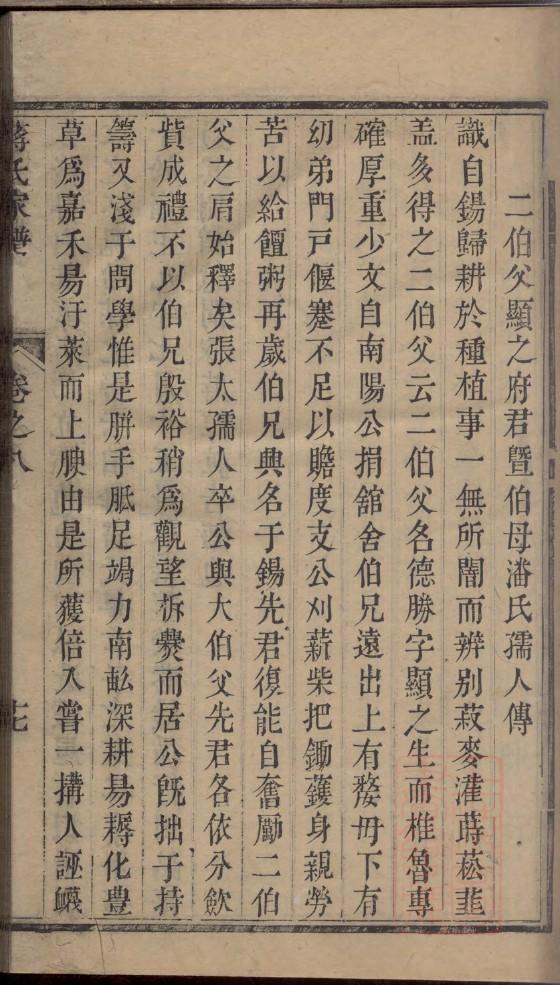 二伯父顯之府君暨伯母潘氏孺人傳
識自錫歸耕於種植事一無所闇而辨别菽麥灌蒔菘韭
盖多得之二伯父云二伯父名德勝字顯之生而椎魯專
確厚重少文自南陽公捐舘舍伯兄遠出上有嫠毋下有
幼弟門戸偃蹇不足以贍度支公刈薪柴把鋤䕶身親勞
苦以給饘粥再歲伯兄興名于錫先君復能自奮勵二伯
父之肩始釋矣張太孺人卒公與大伯父先君各依分斂
貲成禮不以伯兄殷裕稍爲觀望拆爨而居公旣拙于持
籌又淺于問學惟是胼手胝足竭力南畆深耕易耨化豊
草爲嘉禾易汙萊而上腴由是所獲倍入嘗一搆人誣衊
蔣氏家譜
卷之八
七